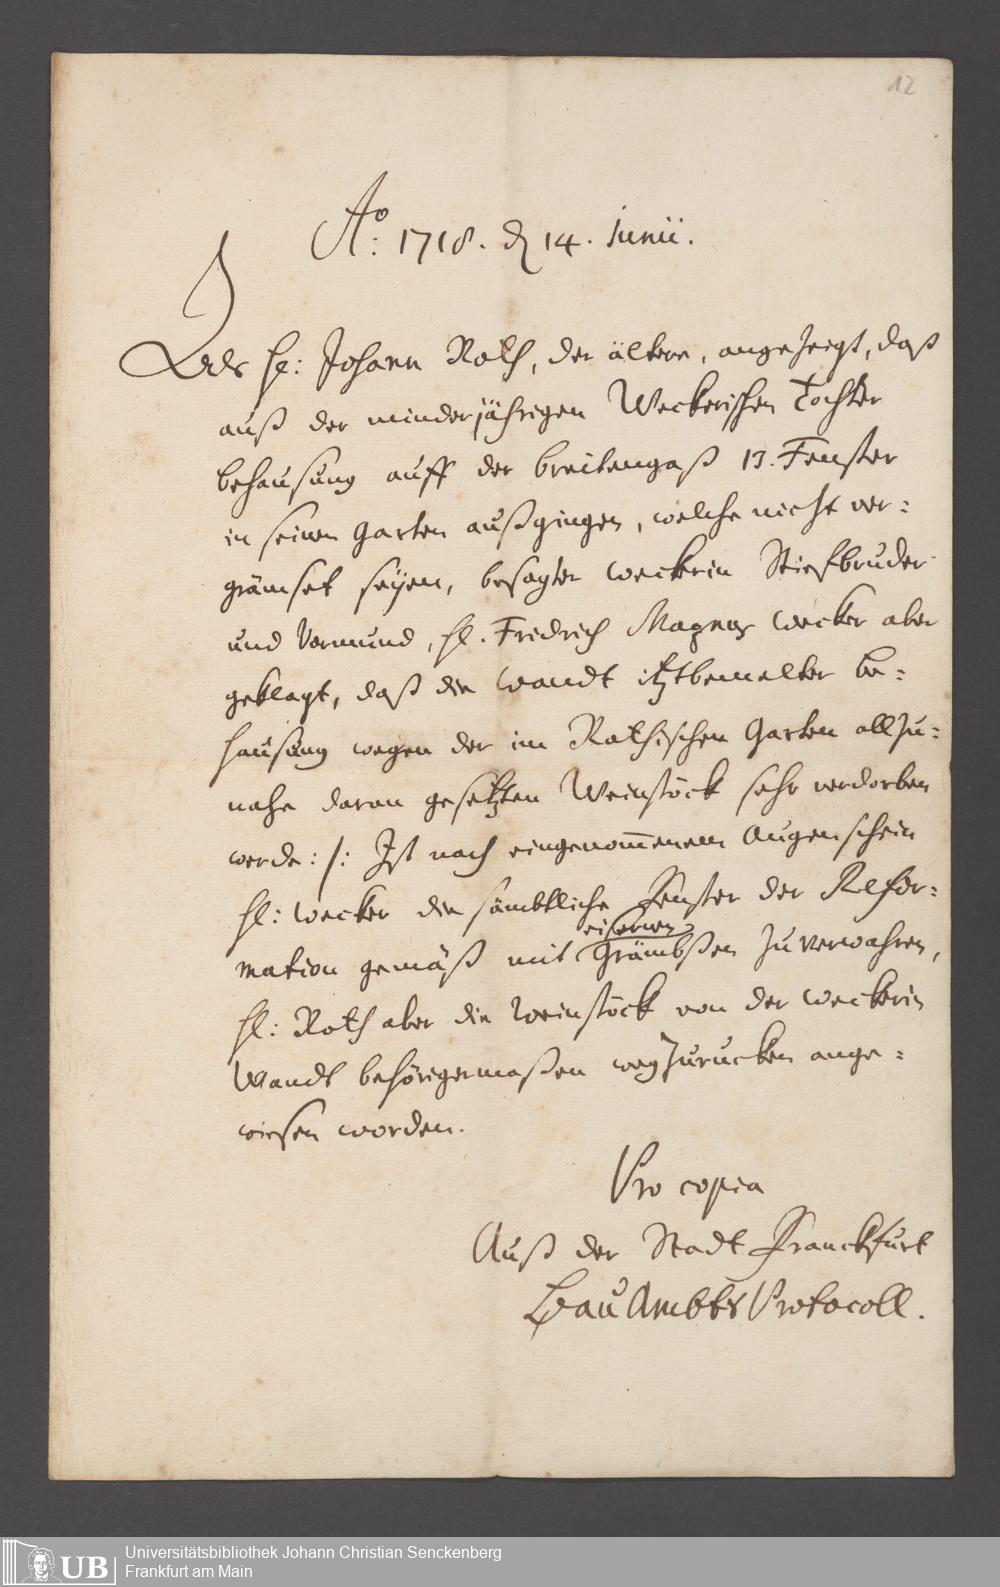 12
Ao: 1718. d 14. Junii.
Als hl: Johann Roth, der ältere, angezeigt, daß
auß der minderjährigen Weckerischen Tochter
behausung auff der breitengaß 13. Fenster
in seinen Garten außgingen, welche nicht ver=
grämset seyen, besagter weckerin Stiefbruder
und Vormund, hl. Fridrich Magnus Wecker aber
geklagt, daß die wandt itztbemelter be=
hausung wegen der im Rothischen Garten allzu=
nahe daran gesetzten Weinstöck sehr verdorben
werde: /: Ist nach eingenom̅enem Augenschein
hl: wecker die sämbtliche Fenster der Refor=
eisernen
mation gemäß mit Grämbßen zu verwahren,
hl: Roth aber die Weinstöck von der weckerin
Wandt behörigermaßen wegzurucken ange=
wiesen worden.
Pro copia
Auß der Stadt Franckfurt
Bau Ambts Protocoll.
UB
Universitätsbibliothek Johann Christian Senckenberg
Frankfurt am Main